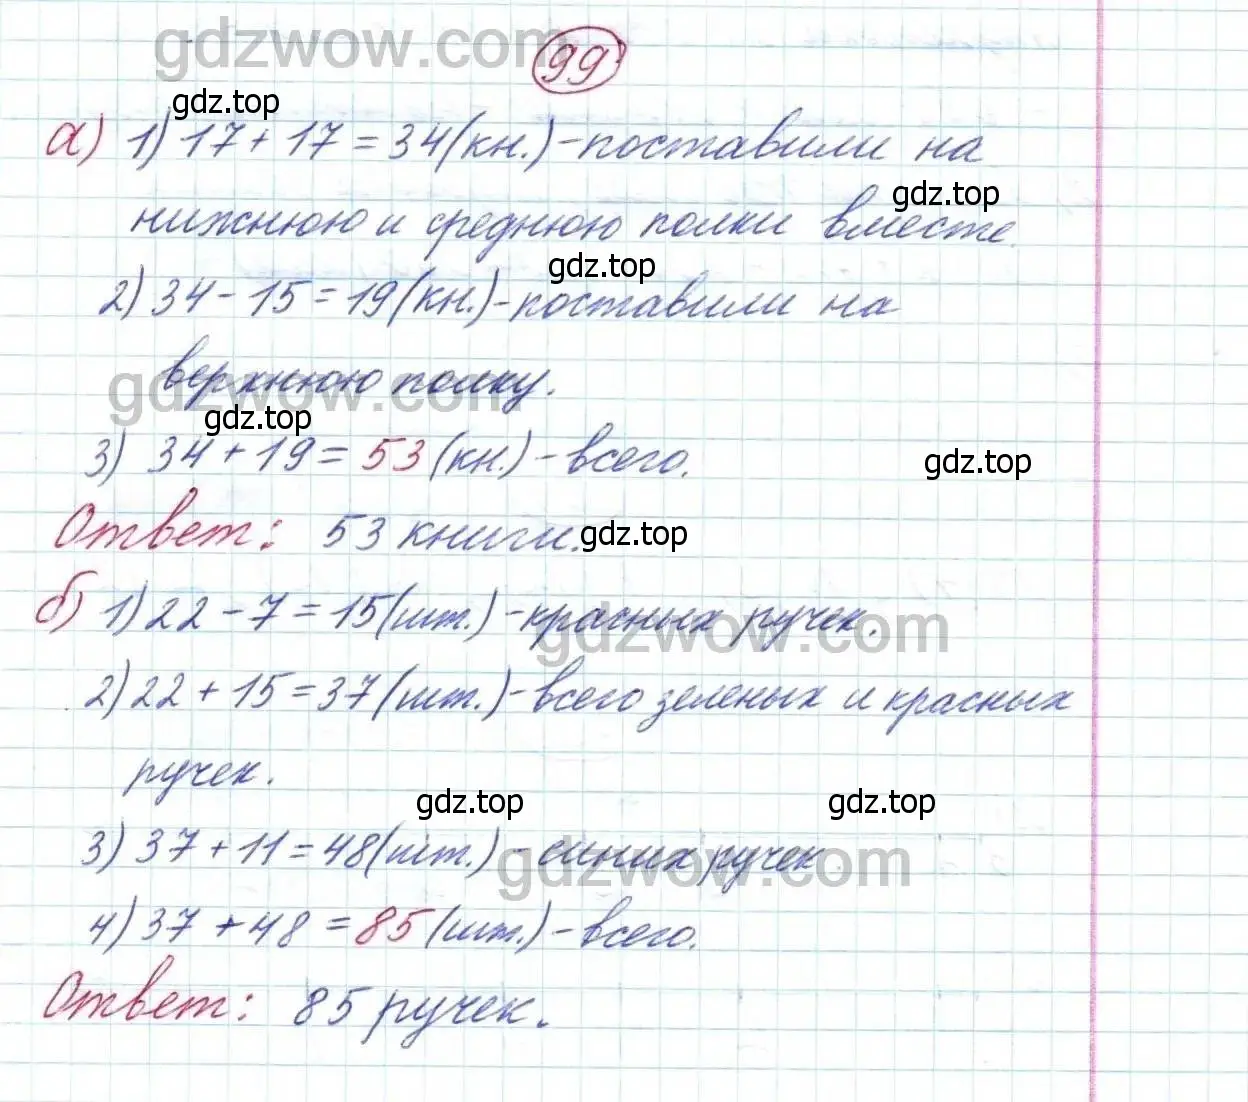 gdzwow.com
99
gdz.top
а) 1) 17 + 17 = 34 (кн.) - поставили на
gdz.top
нижнюю и среднюю полки вместе.
gdz.top
2) 34 - 15 = 19 (кн.) - поставили на
верхнюю полку.
gdzwow.com
gdz.top
3) 34 + 19 = 53 (кн.) - всего.
gdz.top
Ответ: 53 книги.
gdz.top
б) 1) 22 - 7 = 15 (шт.) - красных ручек.
gdzwow.com
2) 22 + 15 = 37 (шт.) - всего зеленых и красных
ручек.
gdz.top gdz.top
3) 37 + 11 = 48 (шт.) - синих ручек.
gdzwow.com
4) 37 + 48 = 85 (шт.) - всего.
Ответ: 85 ручек.